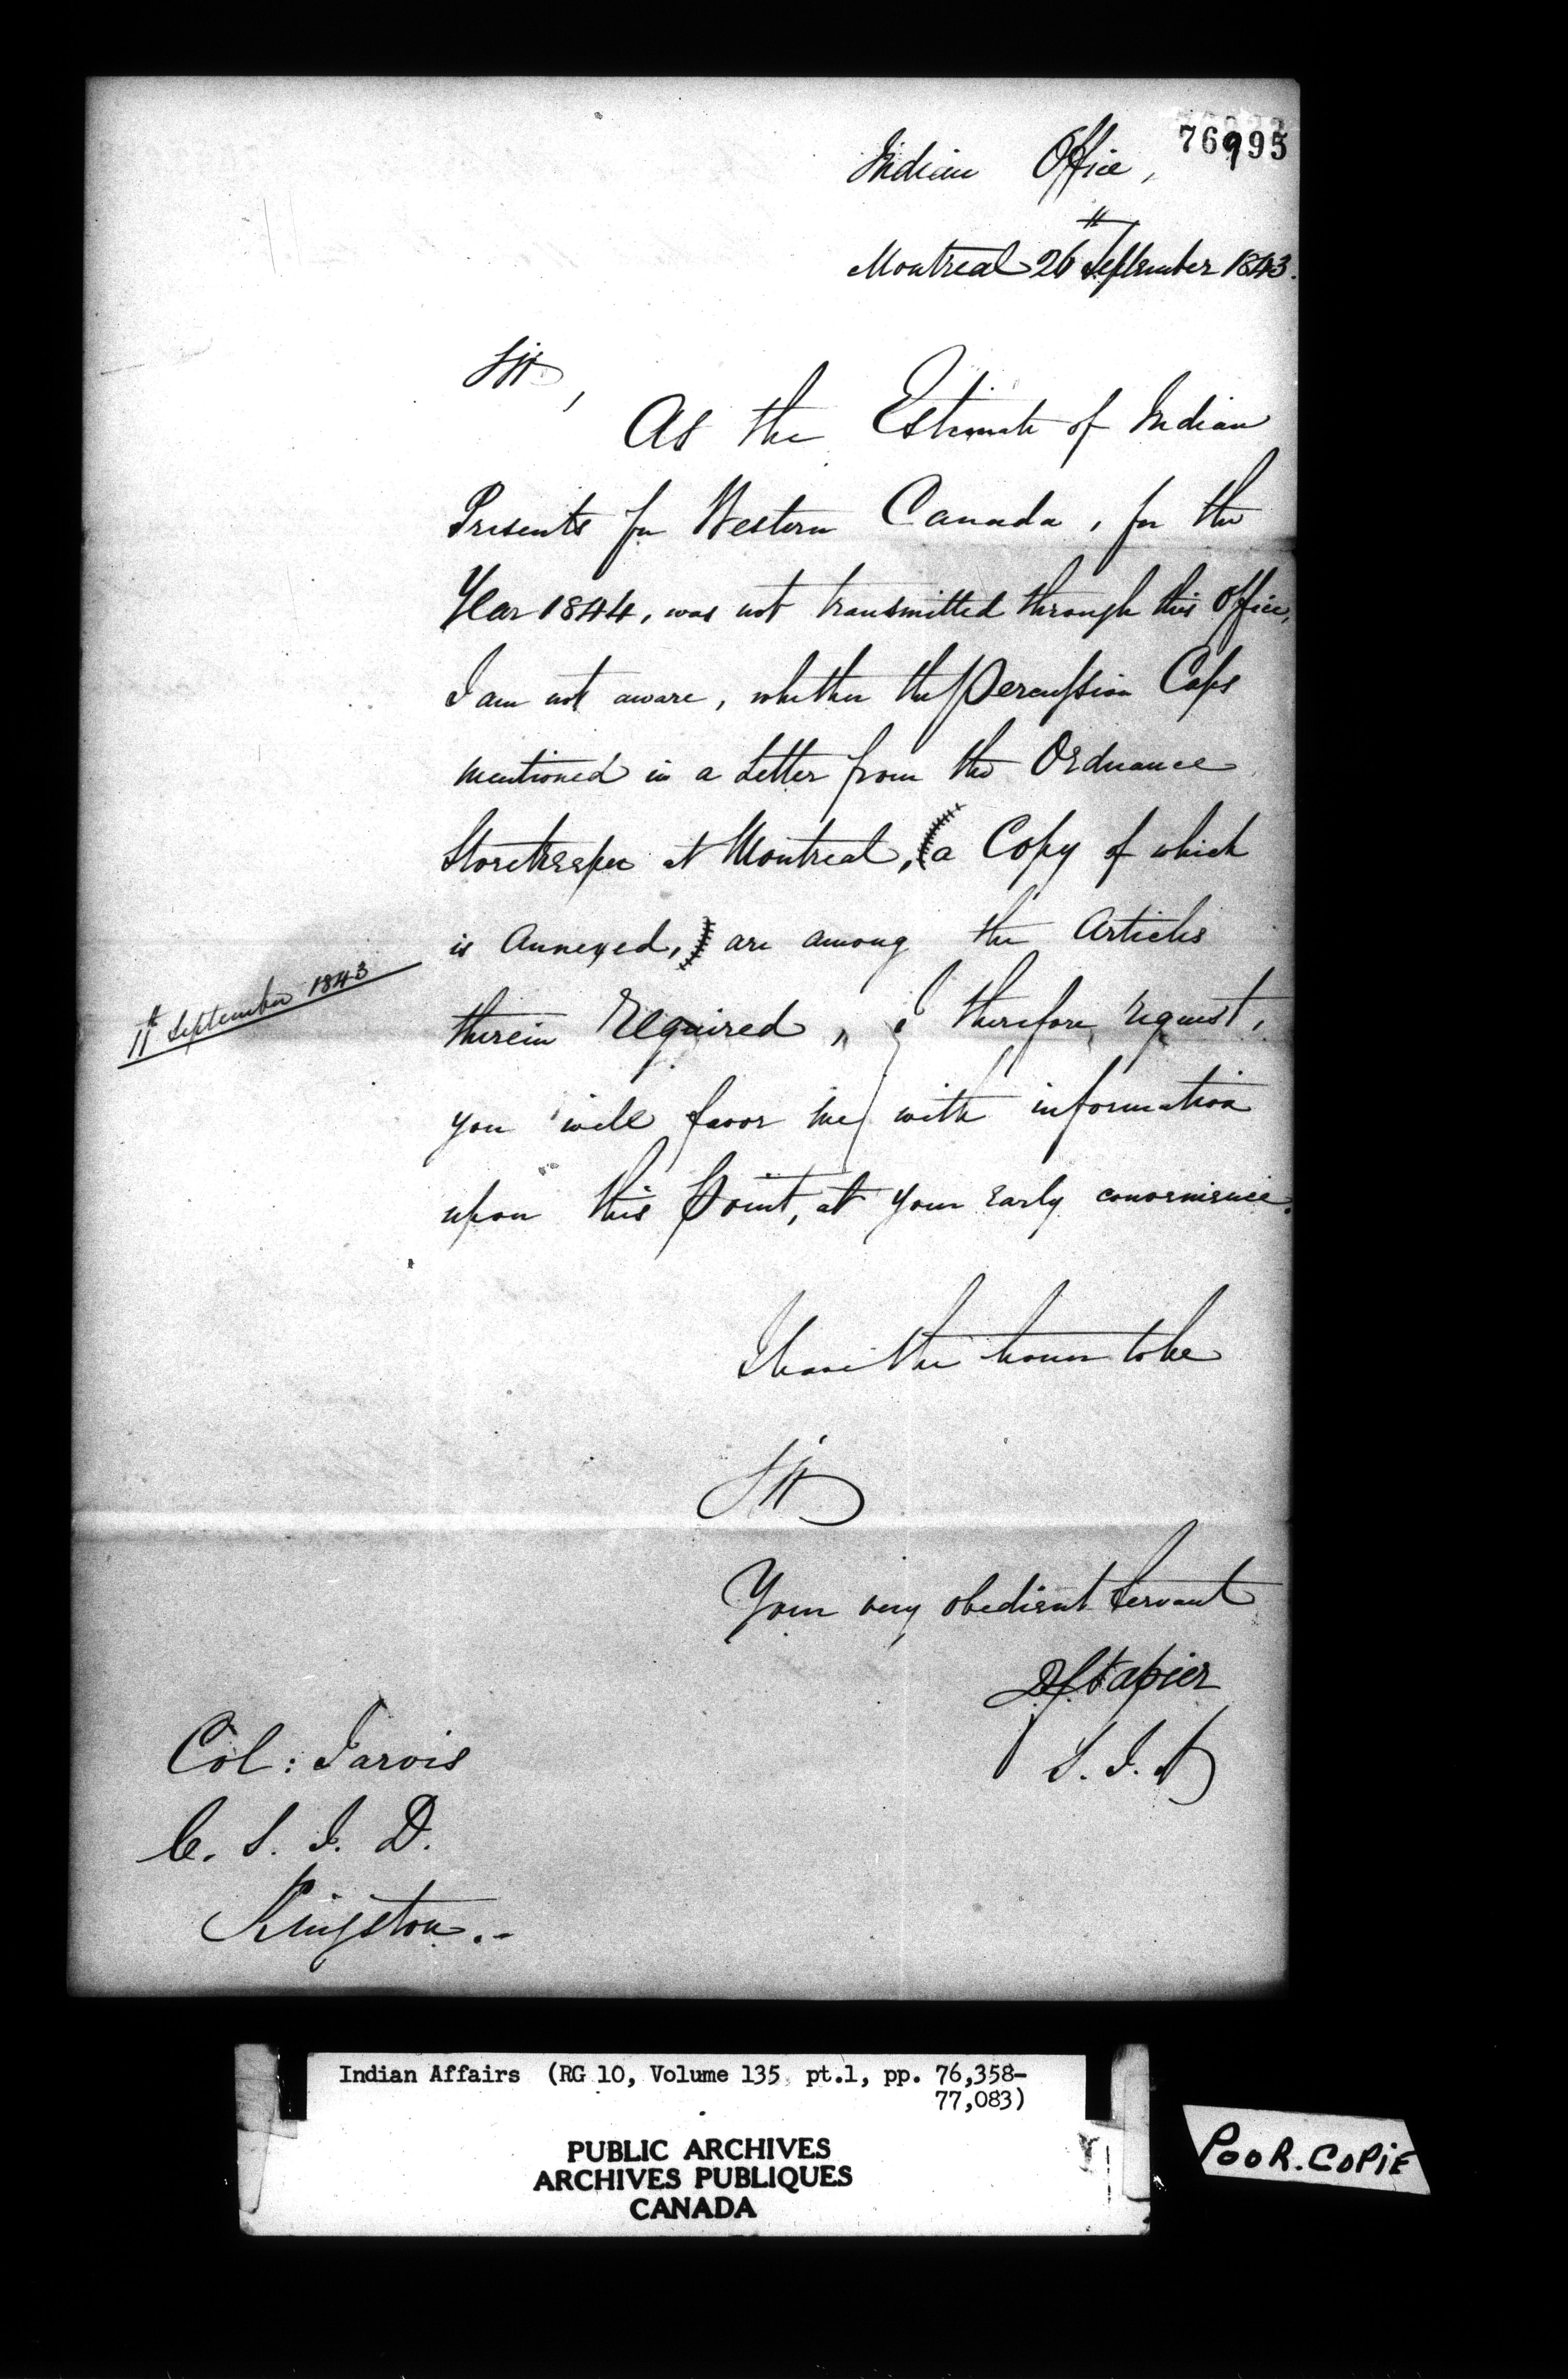 76995
Indian Office,
Montreal 26th September 1843.
Sir,
As the Estimate of Indian
Presents for Western Canada, for the
Year 1844, was not transmitted through this Office,
I am not aware, whether the Percussion Caps
mentioned in a Letter from the Ordnance
Storekeeper at Montreal, (a Copy of which
is Annexed,) are among the Articles
11th September 1843
therein required, I therefore, request,
you will favor me with information
upon this Point, at your early convenience.
I have the honor to be
Sir
Your very obedient Servant
Napier
S. I. A
Col: Jarvis
C. S. I. D.
Kingston.-
Indian Affairs (RG 10, Volume 135 pt.1, pp. 76,358-
77,083)
PUBLIC ARCHIVES
ARCHIVES PUBLIQUES
CANADA
POOR.COPIE